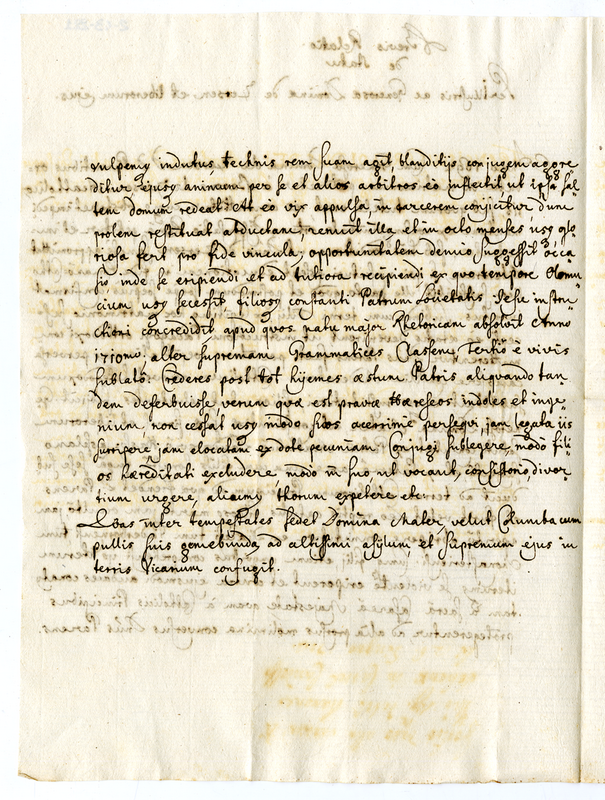 vulpemq indutus technis rem suam agit, blanditijs conjugem aggre
ditur ejusq animum per se et alios arbitros eo inflectit ut ipsa sal-
tem domum redeat: At eo vix appulsa, in carcerem conjicitur dum
prolem restituat abductam; renuit illa et in octo menses usq glo-
riosa fert pro fide vincula; opportunitatem denuo suggessit occa-
sio, inde se eripiendi et ad tutiora recipiendi, ex quo tempore Olomu-
cium usq secessit filiosq constanti Patrum Societatis Jesu instru-
ctioni concredidit, apud quos natu major Rhetoricam absolvit Anno
1710mo: alter supremam Grammatices Classem, Tertio è vivis
sublato. Crederes post tot hijemes æstum Patris aliquando tan-
dem deferbuisse, verum quæ est pravæ hæreseos indoles et inge-
nium, non cessat usq modo suos acerrime persequi, jam legata iis
surripere, jam elocatam ex dote pecuniam Conjugi sublegere, modo fili-
os hæreditati excludere, modo in suo ut vocant, consistorio, divor-
tium urgere, aliumq thorum expetere etc:
Quas inter tempestates sedet Domina Mater, velut Columba cum
pullis suis gemebunda, ad altissimi asylum et supremum ejus in
terris Vicarium confugit.